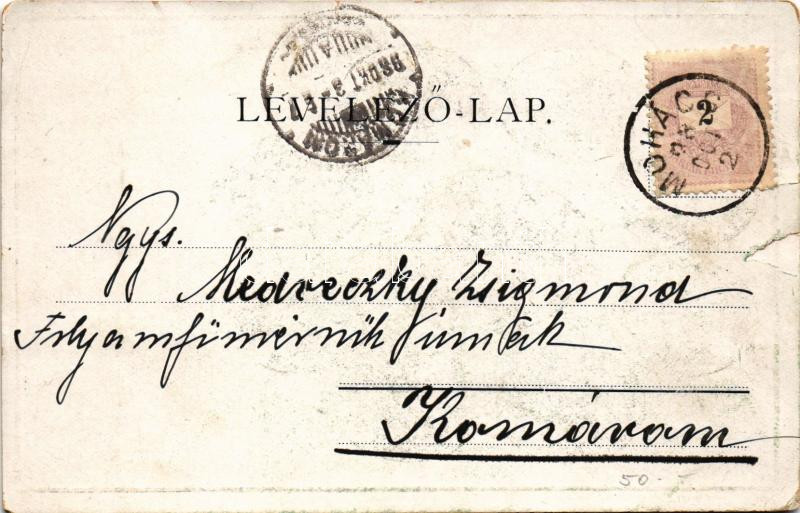 LEVELEZŐ-LAP.
KOMÁROM
98 OKT 3
MOHÁCS
98 OKT 2
2
Ngys.
Medreczky Zsigmond
Folyamfőmérnök úrnak
Komárom
50.